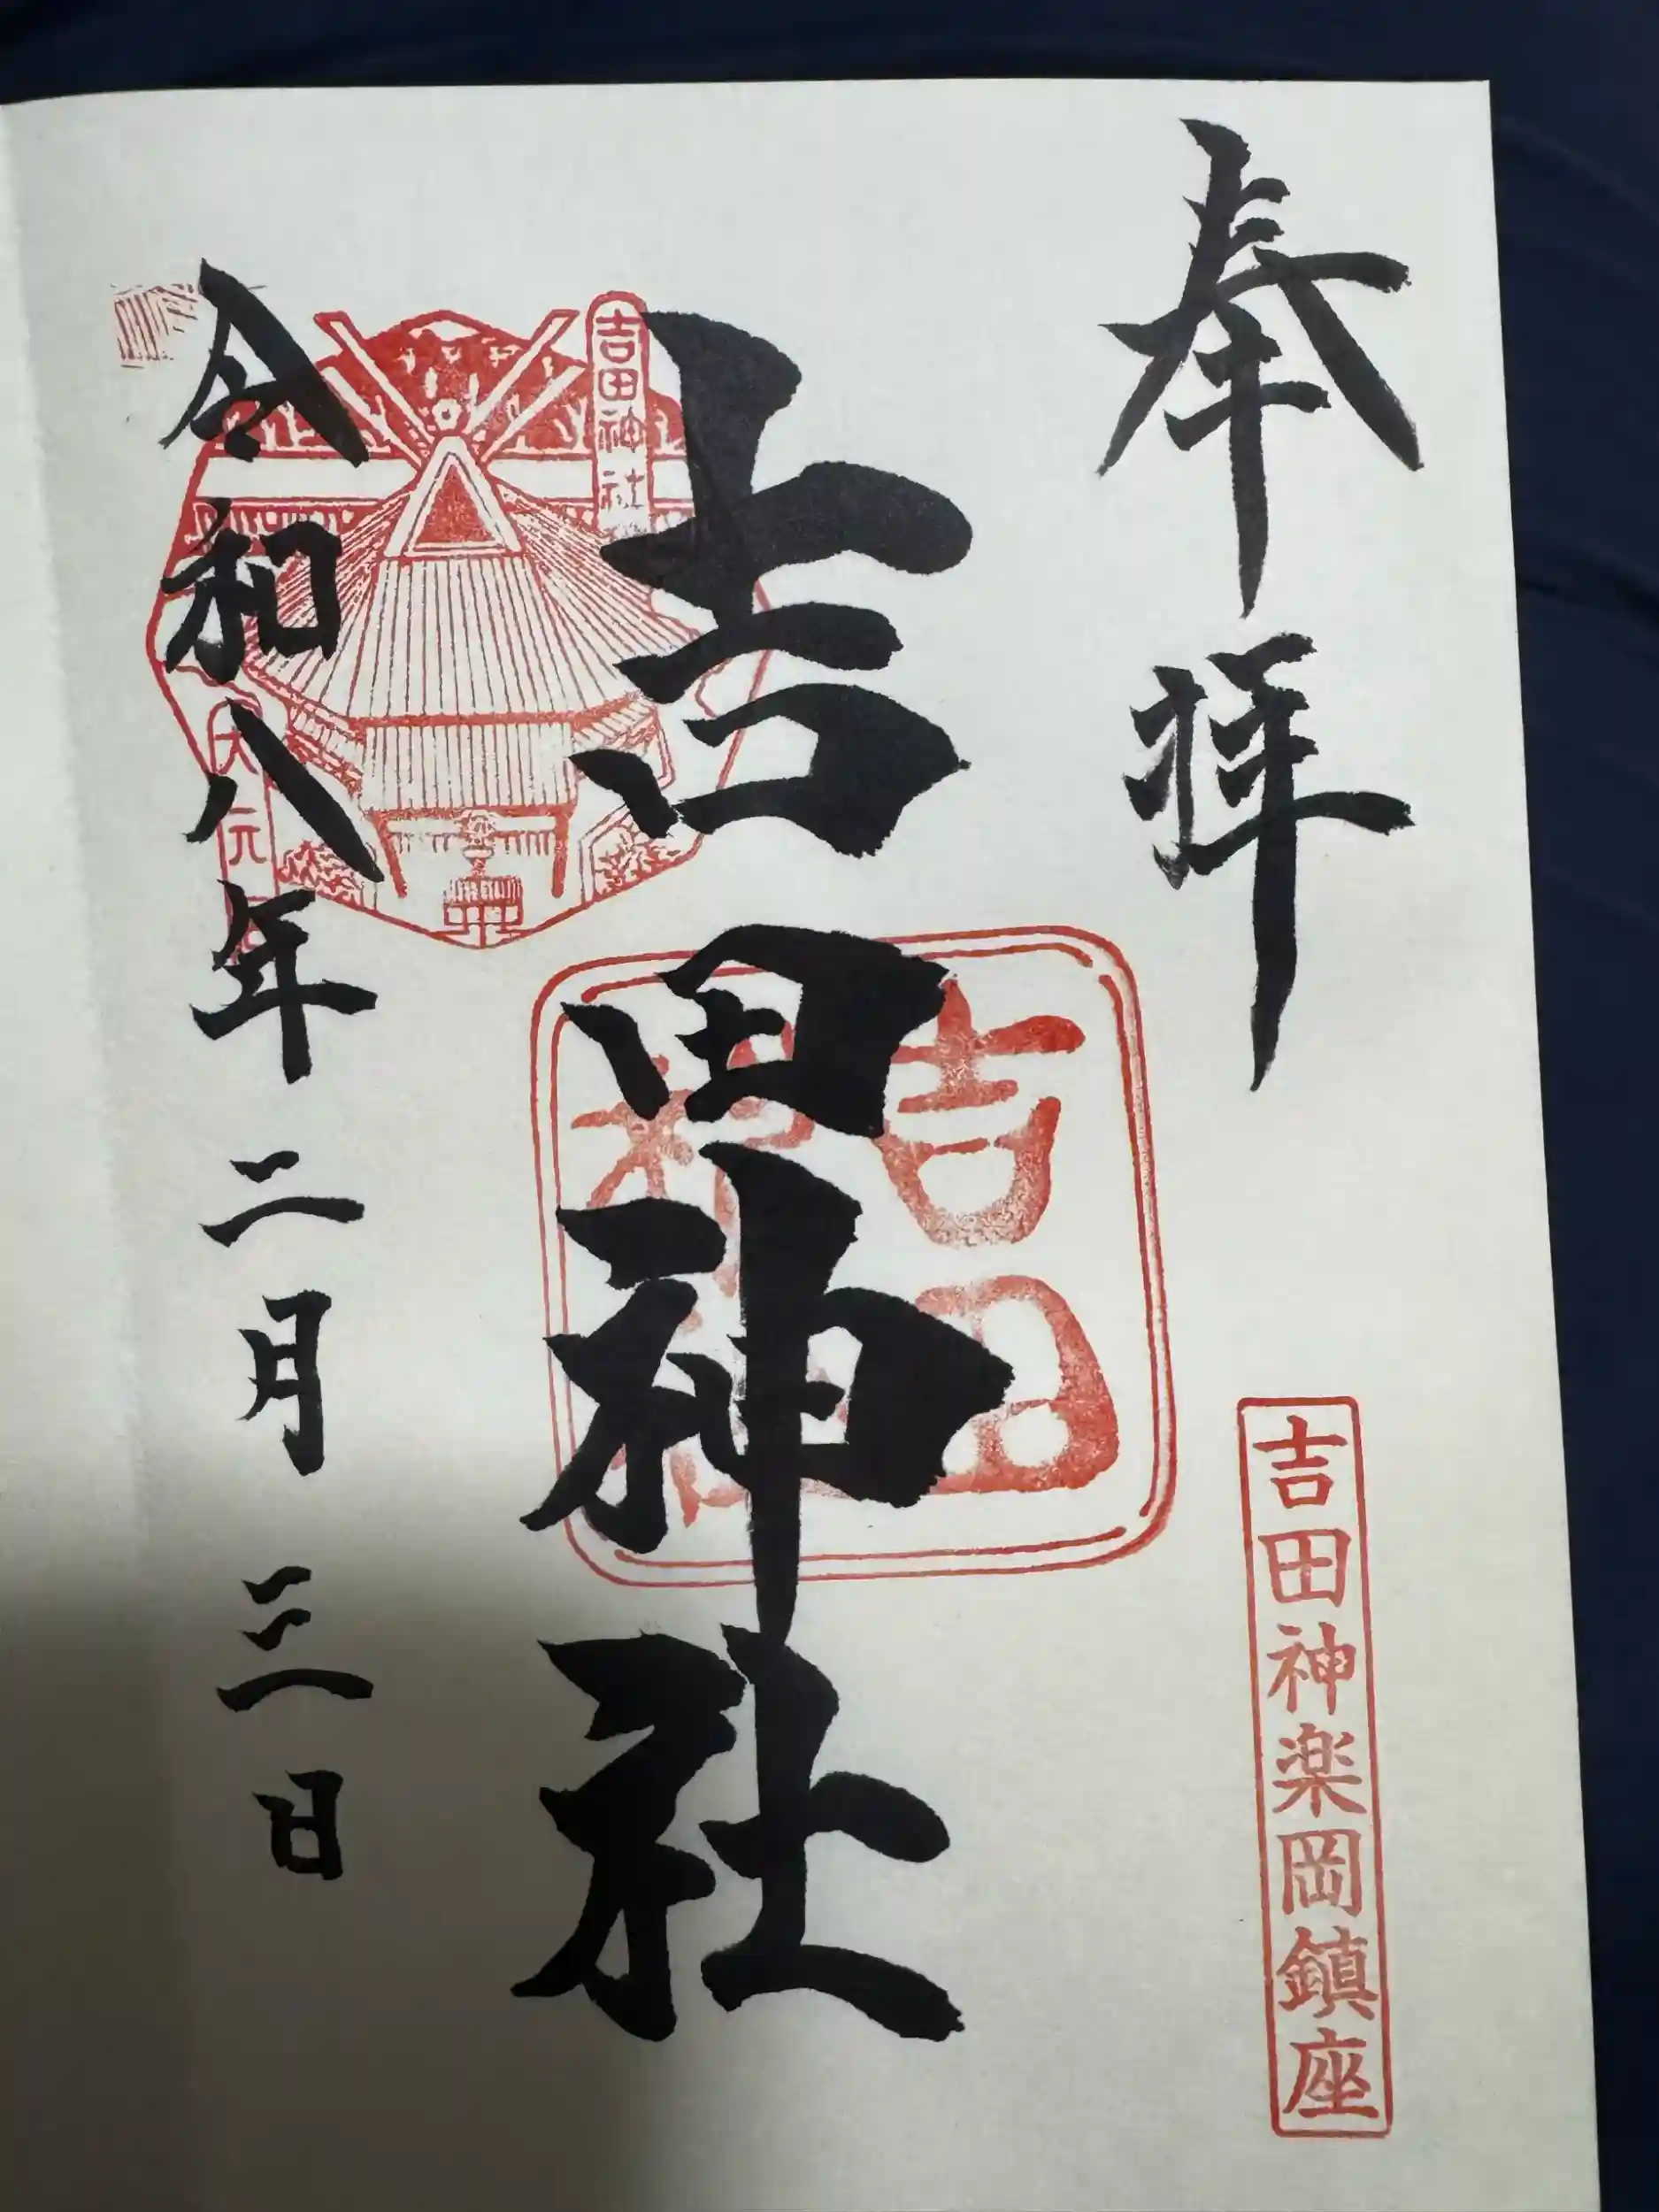 奉拝
吉田神楽岡鎮座
吉田神社
吉田
吉田神社
令和八年二月三日
大元